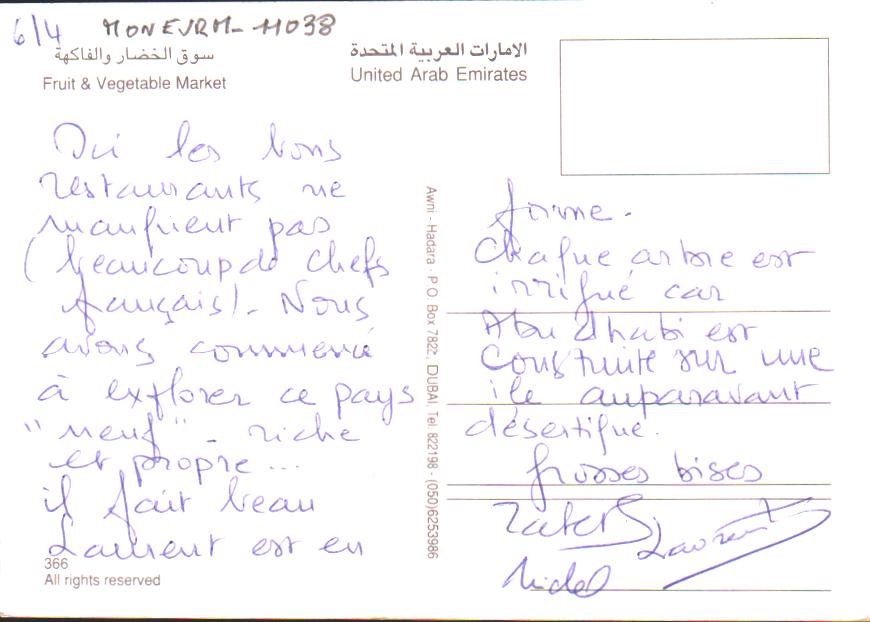 6/4 MONEVRM-11038
سوق الخضار والفاكهة
Fruit & Vegetable Market
الامارات العربية المتحدة
United Arab Emirates
Ici les bons
restaurants ne
manquent pas
(beaucoup de chefs
français). Nous
avons commencé
à explorer ce pays
"neuf" - riche
et propre...
il fait beau
Laurent est en
366
All rights reserved
Awni - Hadara - P.O. Box 7822, DUBAI, Tel. 822198 - (050)6253986
forme.
Chaque arbre est
irrigué car
Abu dhabi est
Construite sur une
île auparavant
désertique.
Grosses bises
Laurent
Michel